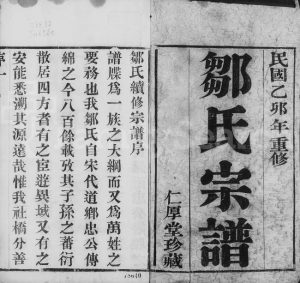 民國乙卯年重修
鄒氏宗譜
仁厚堂珍藏
鄒氏續修宗譜序
譜牒為一族之大綱而又為萬姓之
要務也我鄒氏自宋代道鄉忠公傳
綿之今八百餘載攷其子孫之蕃衍
散居四方者有之宦遊異域又有之
安能悉溯其源遠哉惟我社橋分善
序一